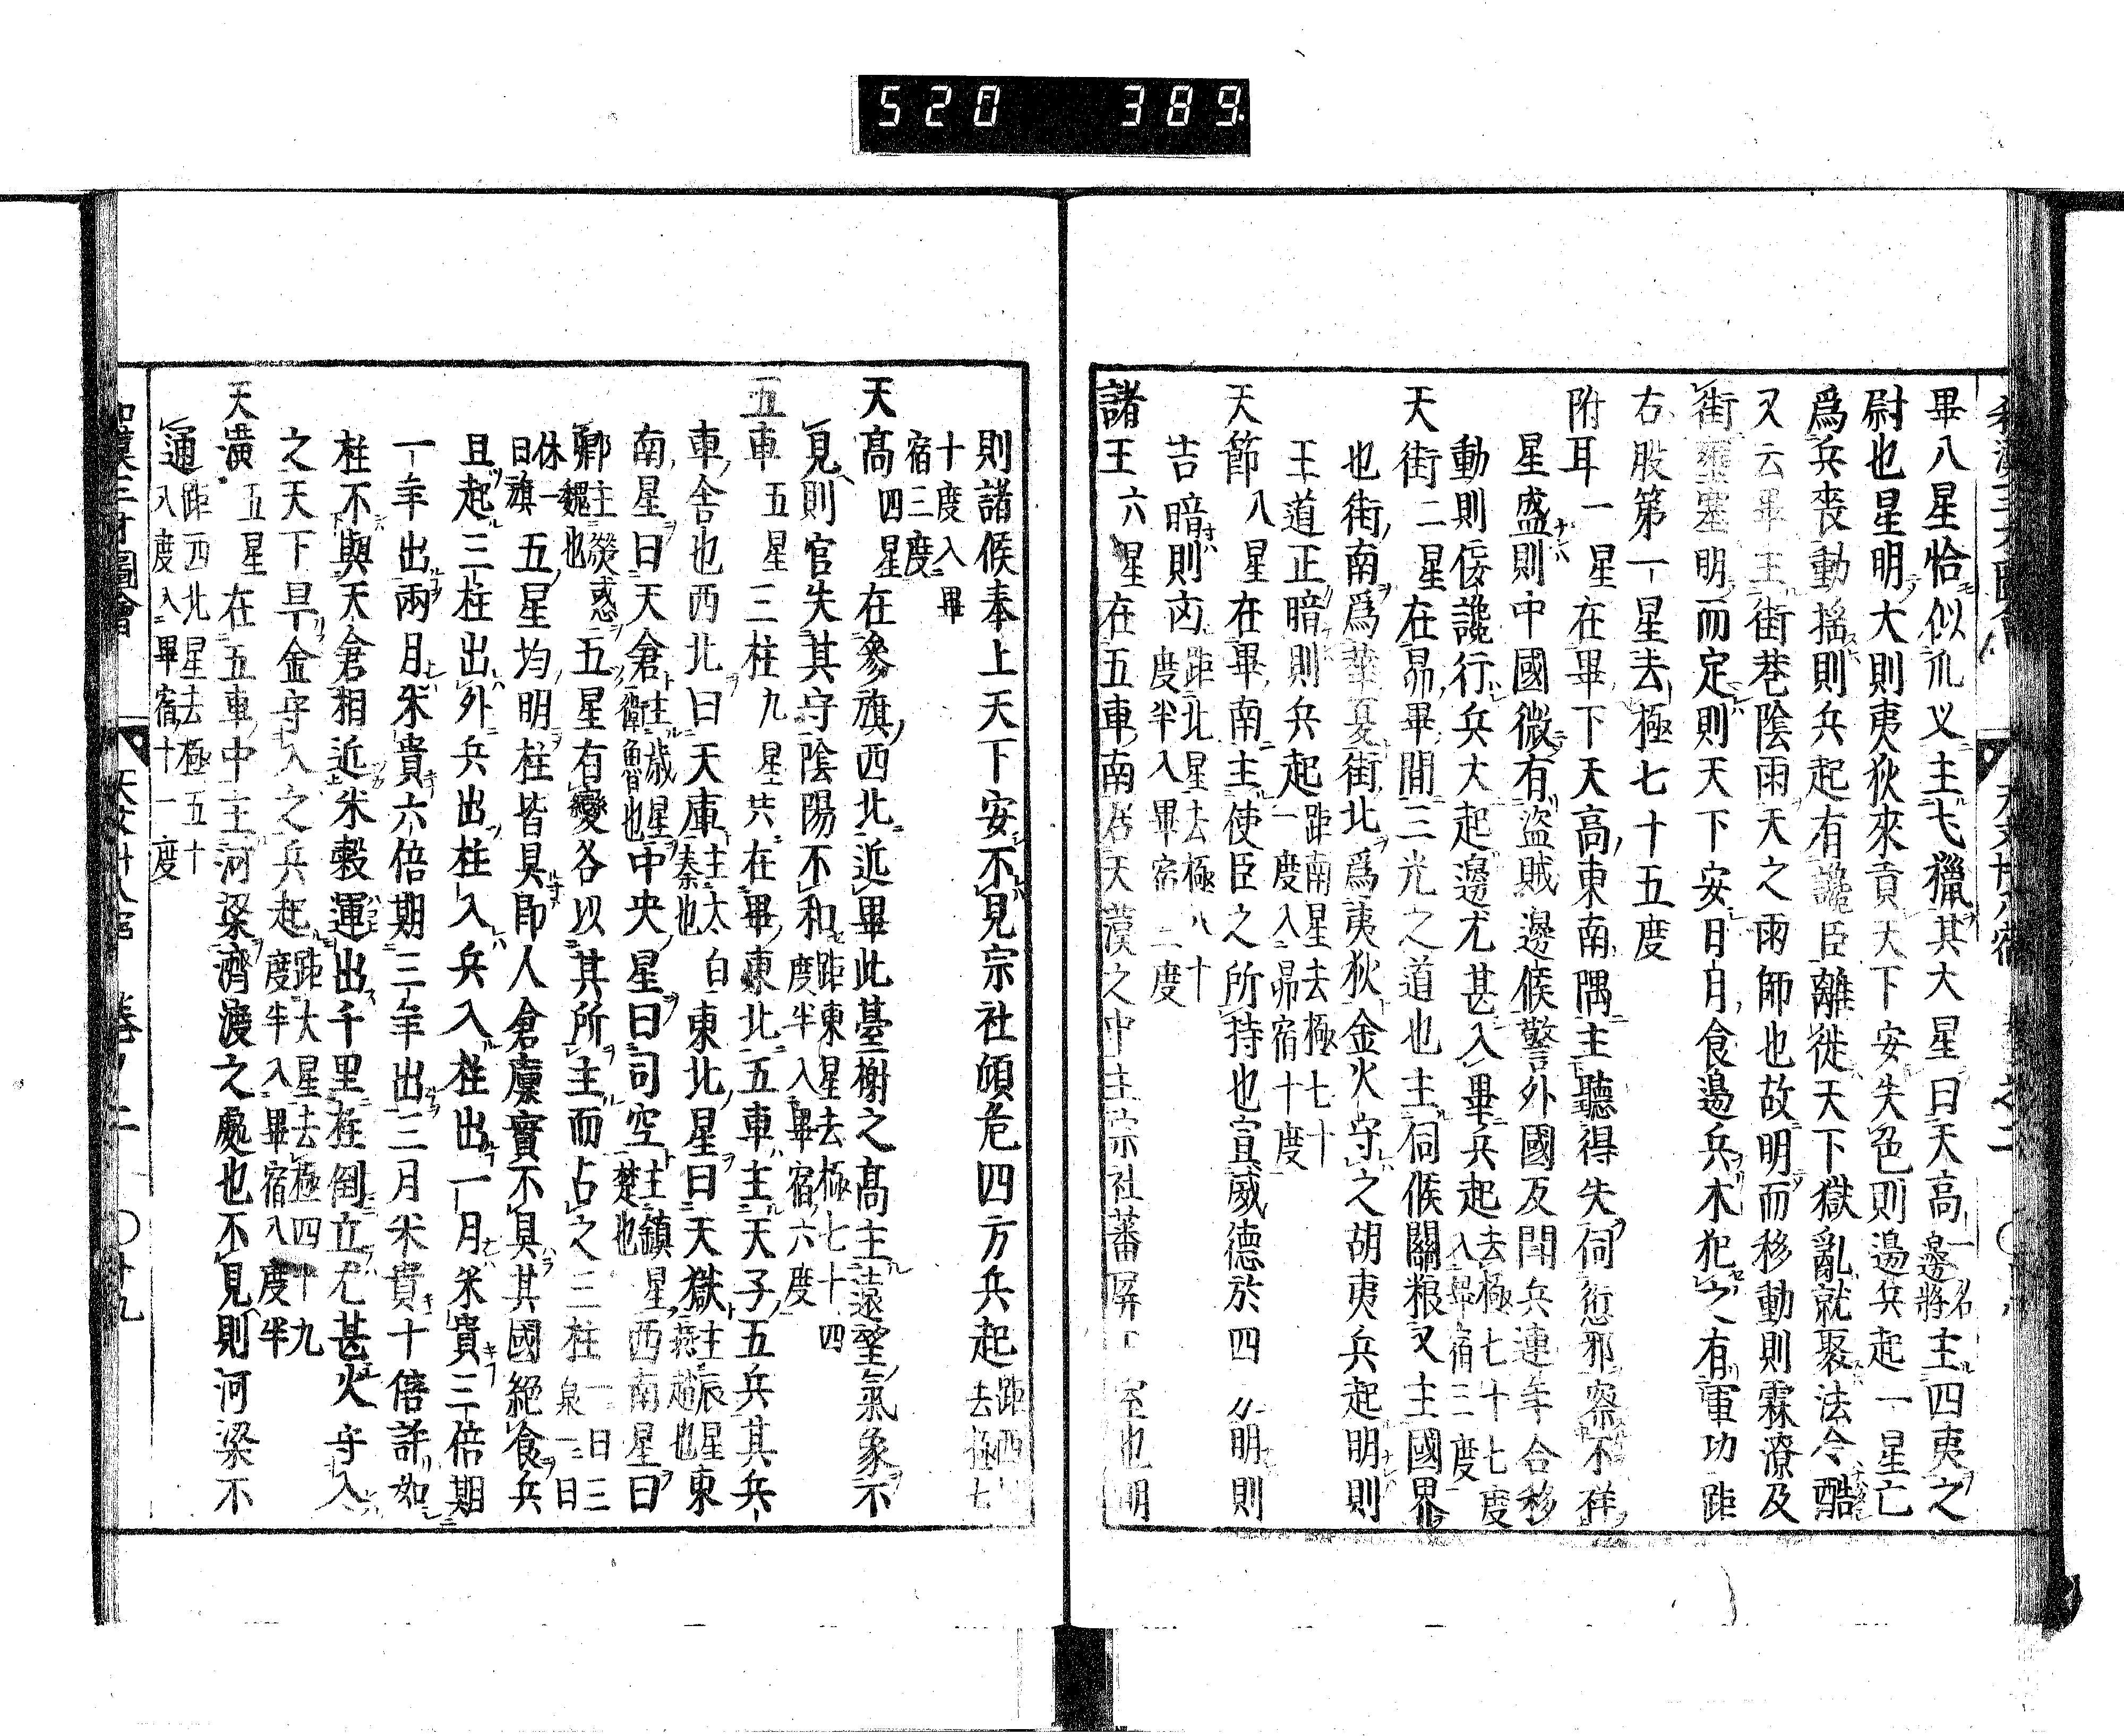 520 389
畢八星恰似爪义主弋獵其大星曰天高一名邊將主四夷之
尉也星明大則夷狄來貢天下安失色則邊兵起一星亡
爲兵喪動搖則兵起有讒臣離徙天下獄亂就聚法令酷
又云畢主街巷陰雨天之雨師也故明而移動則霖潦及
街壅塞明而定則天下安日月食邊兵木犯之有軍功距
右股第一星去極七十五度
附耳一星在畢下天高東南隅主聽得失伺愆邪察不祥
星盛則中國微有盜賊邊候警外國反鬪兵連年合移
動則佞讒行兵大起邊尤甚入畢兵起去極七十七度入畢宿三度
天街二星在昴畢間三光之道也主伺候關粮又主國界
也街南爲華夏街北爲夷狄金火守之胡夷兵起明則
王道正暗則兵起距南星去極七十一度入昴宿十度
天節八星在畢南主使臣之所持也宣威德於四明則
吉暗則凶距北星去極八十度半入畢宿二度
諸王六星在五車南居天漢之中主宗社蕃屏室也明
則諸候奉上天下安不見宗社傾危四方兵起距西去極七
十度入畢宿三度
天高四星在參旗西北近畢此臺榭之高主遠望氣象不
見則官失其守陰陽不和距東星去極七十四度半入畢宿六度
五車五星三柱九星共在畢東北五車主天子五兵其兵
車舍也西北曰天庫主太白秦也東北星曰天獄主辰星燕趙也東
南星曰天倉主歲星衛魯也中央星曰司空主鎮星楚也西南星曰
卿主熒惑魏也五星有變各以其所主而占之三柱一曰三泉一曰
休一曰旗五星均明柱皆具即人倉廩實不具其國絕食兵
且起三柱出外兵出柱入兵入柱出一月米貴三倍期
一年出兩月米貴六倍期三年出三月米貴十倍許如
柱不與天倉相近米穀運出千里柱倒立尤甚火守入
之天下旱金守入之兵起距大星去極四十九度半入畢宿八度半
天潢五星在五車中主河梁濟渡之處也不見則河梁不
通距西北星去極五十八度入畢宿十一度